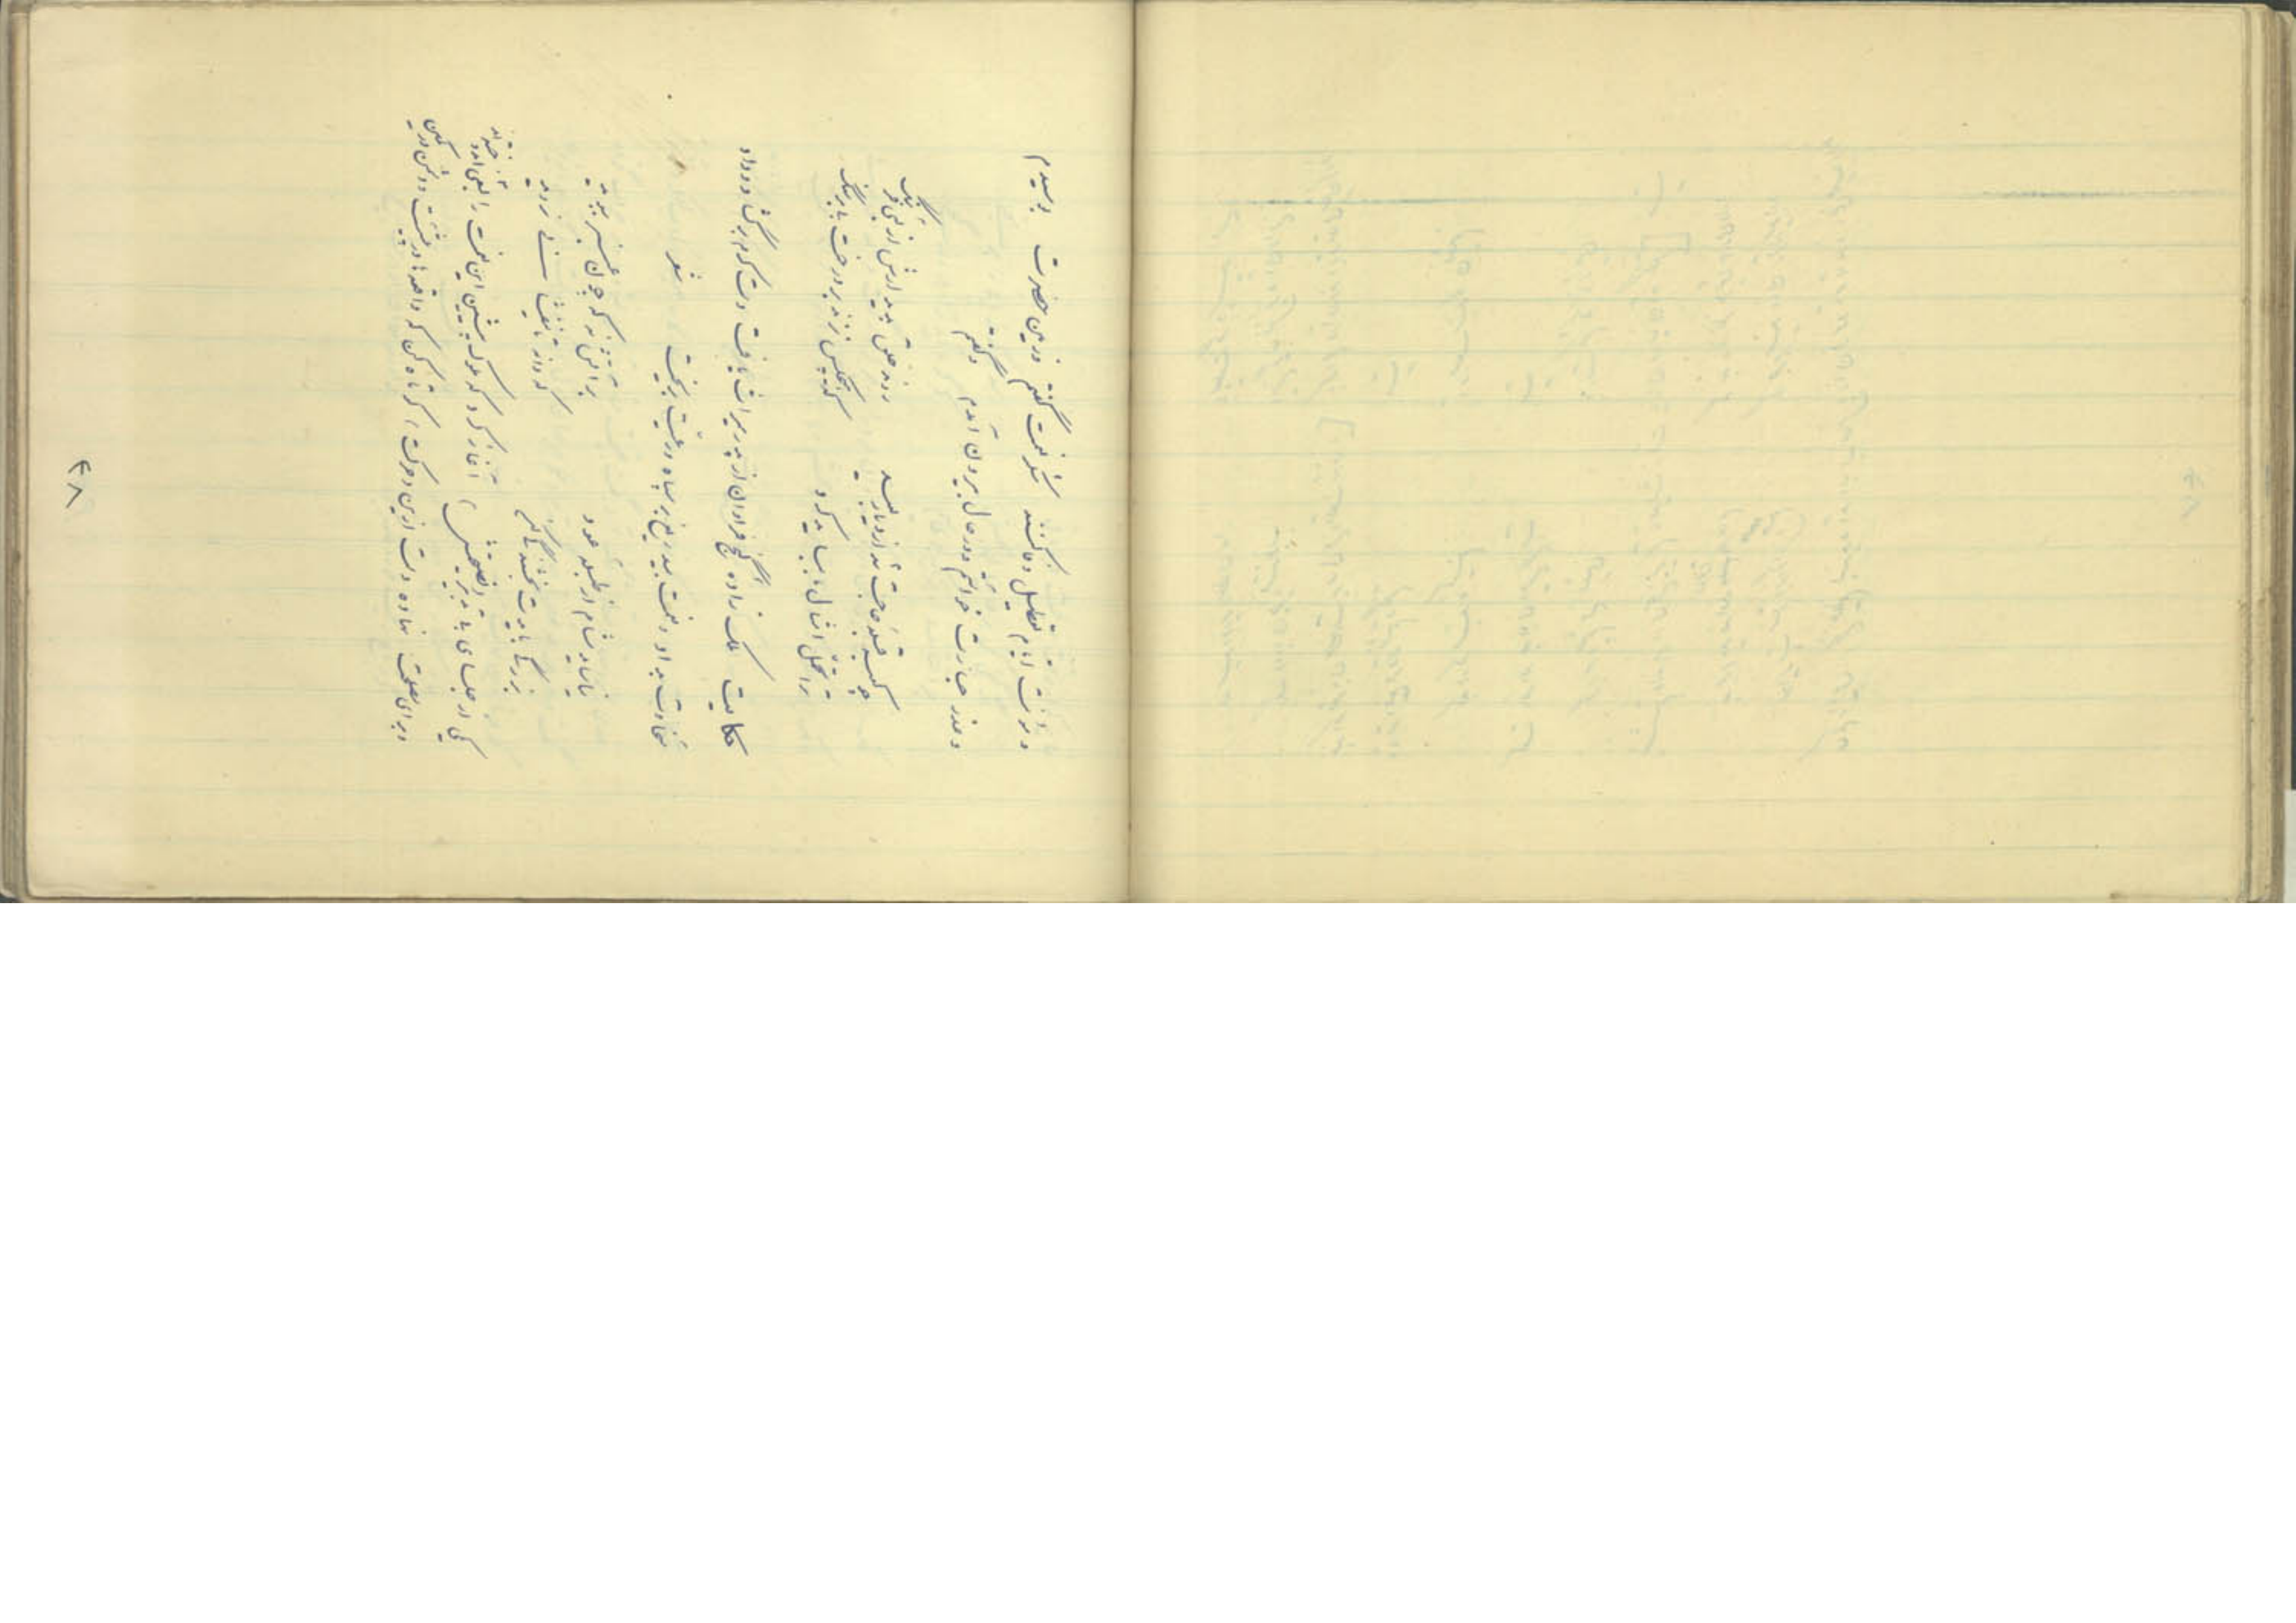 در مؤنت ایام تعطیل وفا کنند شکر نعمت گفتم و زمین حضرت بوسیدم
و عذر جسارت خواستم و در حال بیرون آمدم و گفتم
چو کعبه قبله حاجت شد از دیار بعید روند خلق بدیدارش از بسی فرسنگ
ترا تحمل امثال ما بباید کرد که هیچکس نزند بر درخت بی بر سنگ
حکایت ملک زاده گنج فراوان از پدر میراث یافت دست کرم برگشاد و داد
سخاوت بداد و نعمت بیدریغ بر سپاه و رعیت بریخت شعر
نیاساید مشام از طبله عود بر آتش نه که چون عنبر ببوید
بزرگی بایدت بخشندگی کن که دانه تا نیفشانی نروید
یکی از جلسای بی تدبیر نصیحتش آغاز کرد که ملوک پیشین این نعمت را بسعی اندوخته اند
و برای مصلحت نهاده دست ازین حرکت کوتاه کن که واقعه ها در پیشست و دشمن در کمین
۴۸